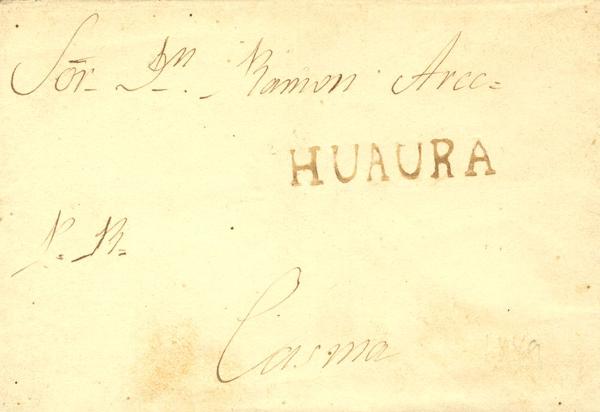 Sōr. Dn. Ramon Arce=
HUAURA
P. R.
Casma